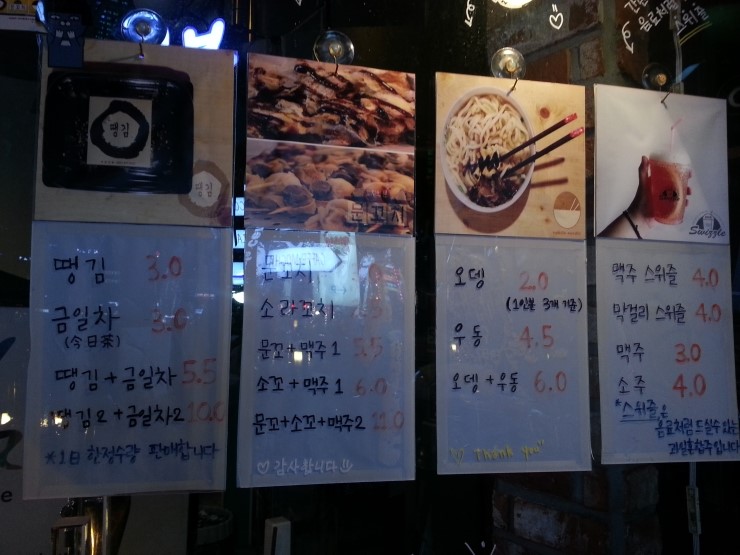 간편
음료처럼
스위즐
땡김
땡김
문꼬치
Swizzle
땡김 3.0
금일차 3.0
(今日茶)
땡김+금일차 5.5
땡김2+금일차2 10.0
※1日 한정수량 판매합니다
문꼬치
소라꼬치
문꼬+맥주1 5.5
소꼬+맥주1 6.0
문꼬+소꼬+맥주2 11.0
♡감사합니다
오뎅 2.0
(1인분 3개 기준)
우동 4.5
오뎅+우동 6.0
"♡ Thank you"
맥주 스위즐 4.0
막걸리 스위즐 4.0
맥주 3.0
소주 4.0
"스위즐"은
음료처럼 드실수 있는
과일혼합주입니다